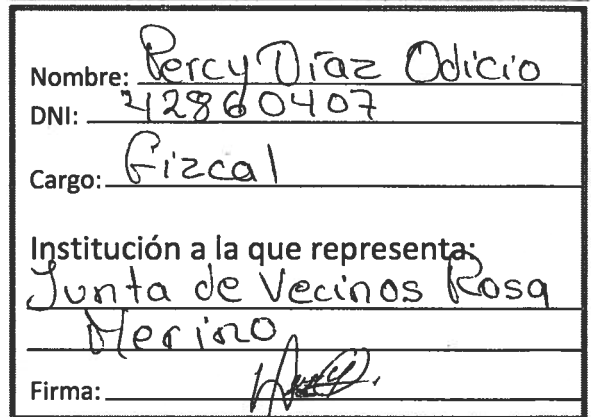 Nombre: Percy Díaz Odicio
DNI: 42860407
Cargo: Fizcal
Institución a la que representa:
Junta de Vecinos Rosa
Merino
Firma: